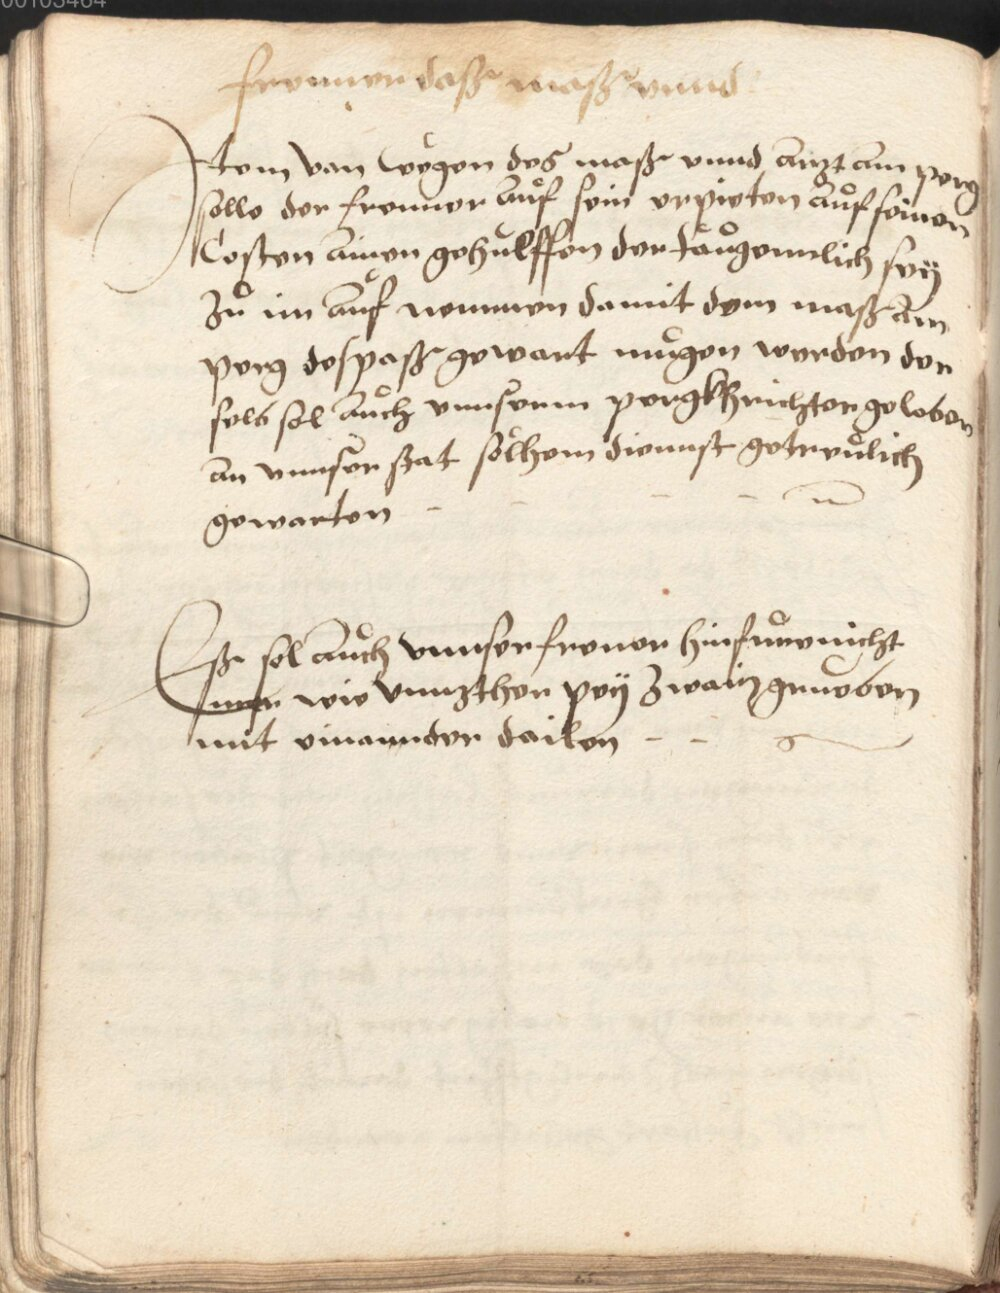 00103464
fronner das maß vnnd
Item Van wegen des maß vnnd ärtzt am perg
solle der fronner auf sein erpieten auf seinen
Costen ainen gehulffen der taugennlich sey
zu im auf nemmen damit dem maß am
perg despaß gewart mugen werden der
selb sol auch vnnserm pergkhrichter geloben
an vnnser stat solhem diennst getreulich
gewarten
Eß sol auch vnnser froner hinfure nicht
mer wie vnnzther pey zwain grueben
mit einannder dailen